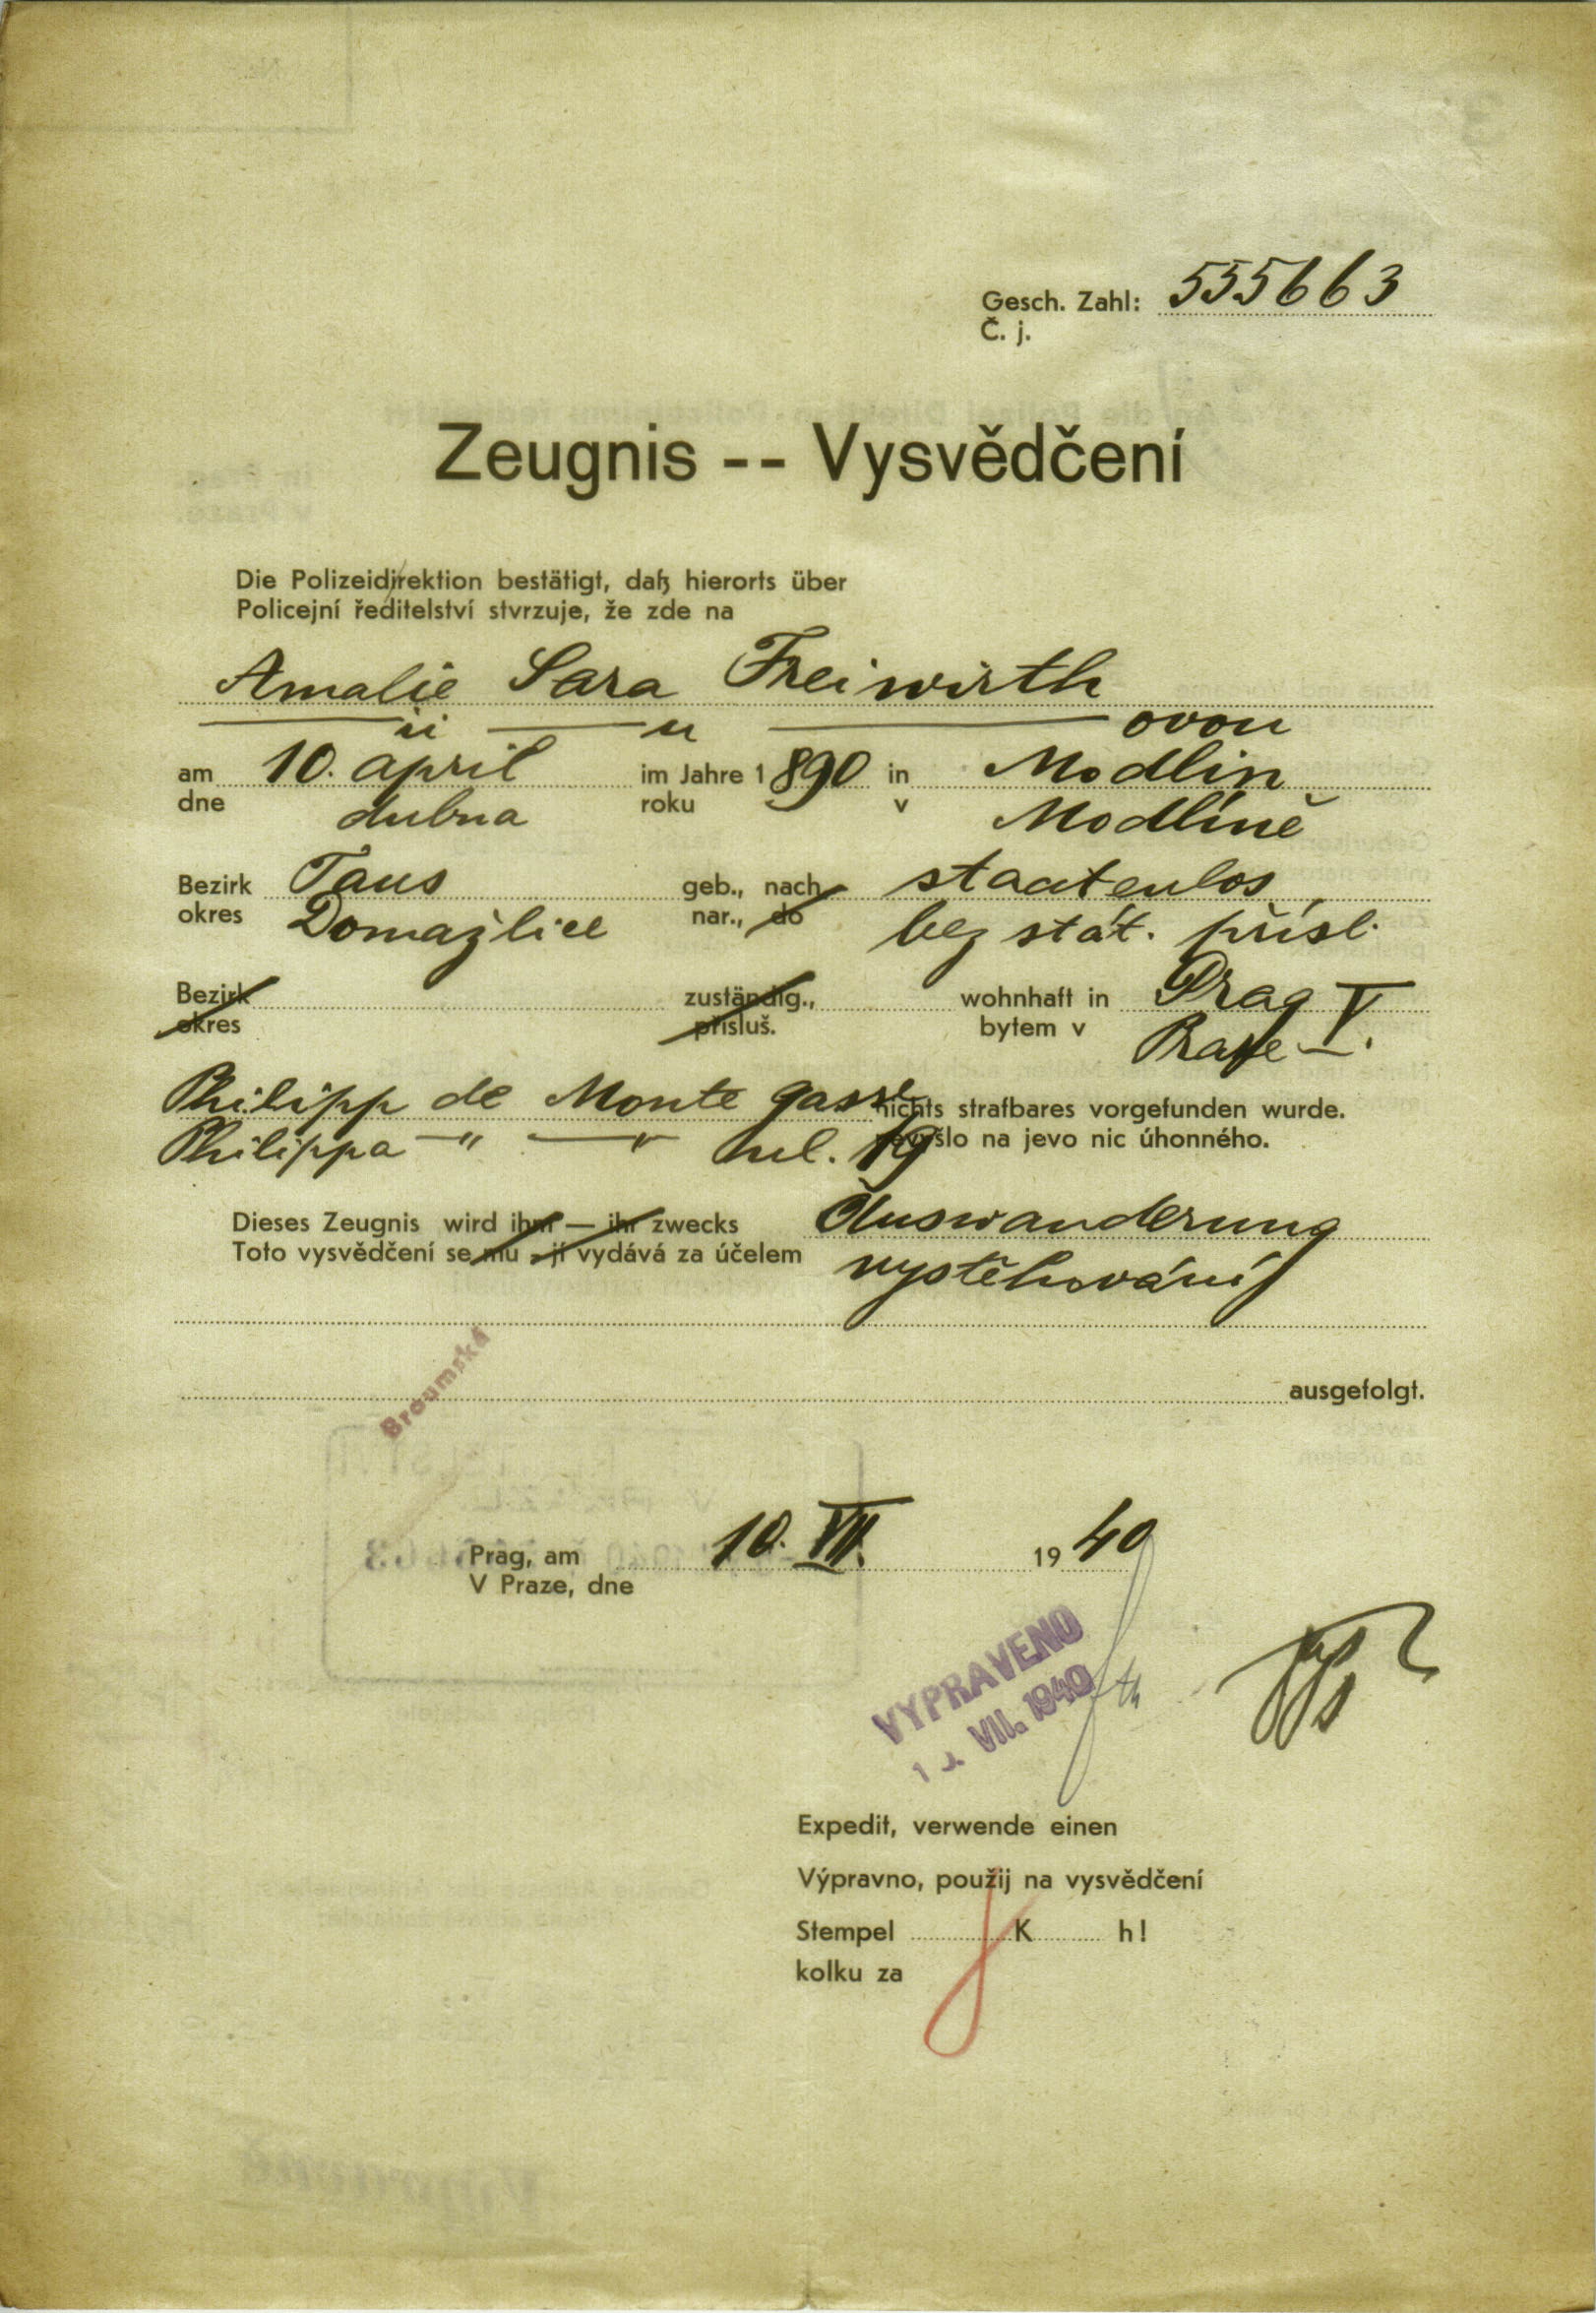 Gesch. Zahl: 555663
Č. j.
Zeugnis -- Vysvědčení
Die Polizeidirektion bestätigt, daß hierorts über
Policejní ředitelství stvrzuje, že zde na
Amalie Sara Freiwirth
ii u ovou
am 10. april im Jahre 1890 in Modlin
dne dubna roku v Modlíně
Bezirk Taus geb., nach staatenlos
okres Domažlice nar., do bez stát. přísl.
Bezirk zuständig., wohnhaft in Prag V
okres přísluš. bytem v Praze V.
Philipp de Monte gasse nichts strafbares vorgefunden wurde.
Philippa — " — " — ul. 19 nevyšlo na jevo nic úhonného.
Dieses Zeugnis wird ihm — ihr zwecks Auswanderung
Toto vysvědčení se mu - jí vydává za účelem vystěhování
Broumská
ausgefolgt.
Prag, am 10. VII. 1940
V Praze, dne
VYPRAVENO
VII. 1940
Expedit, verwende einen
Výpravno, použij na vysvědčení
Stempel K h!
kolku za